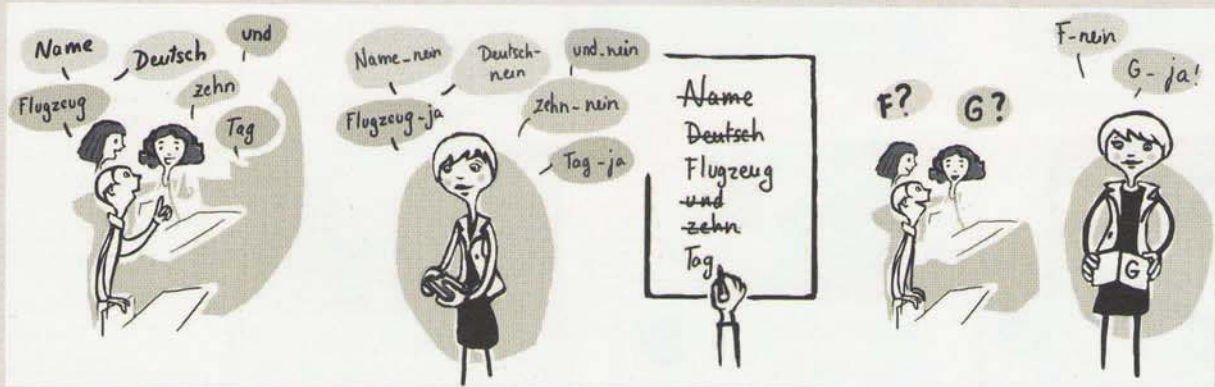 Name
Deutsch
und
Flugzeug
zehn
Tag
Name-nein
Deutsch-
nein
und-nein
Flugzeug-ja
zehn-nein
Tag-ja
Name
Deutsch
Flugzeug
und
zehn
Tag
F?
G?
F-nein
G-ja!
G